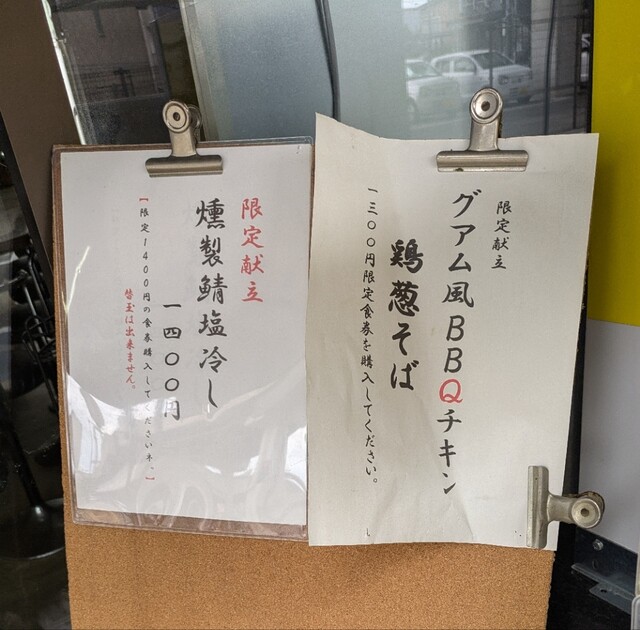 限定献立
グアム風BBQチキン
鶏葱そば
一三〇〇円限定食券を購入してください。
限定献立
燻製鯖塩冷し
一四〇〇円
【限定1400円の食券購入してくださいネ。】
替玉は出来ません。